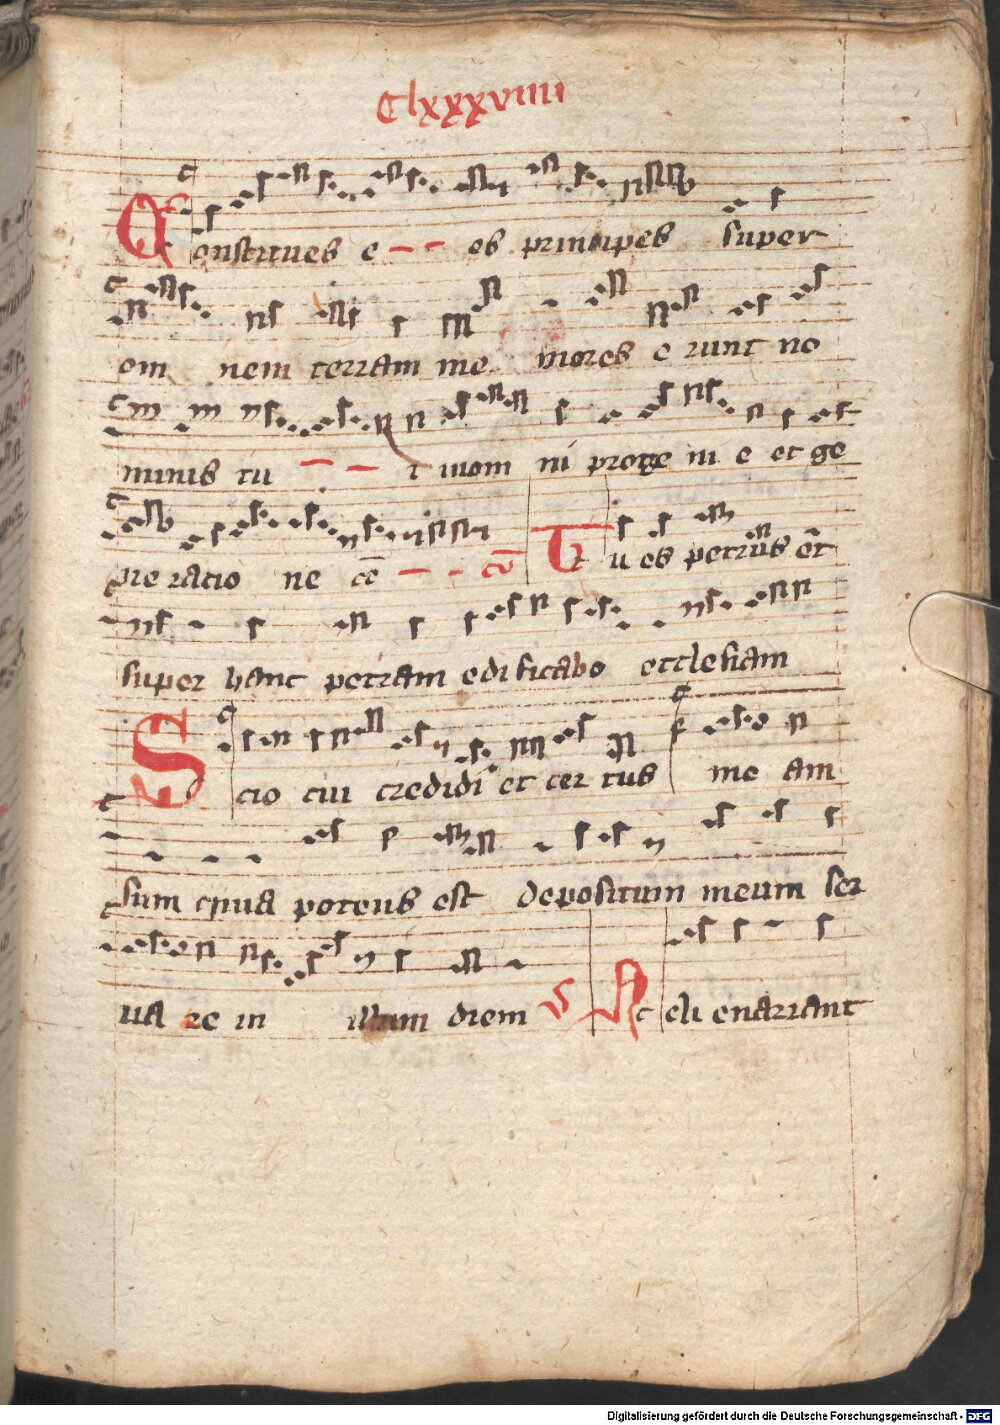 Clxxxviiii
Constitues e – – es principes super
om nem terram me mores e runt no
minis tu – – i mom ni proge ni e et ge
ne ratio ne cō – – cū Tu es petrus et
super hanc petram edificabo ecclesiam
Scio cui credidi et cer tus me am
sum quia potens est depositum meum ser
ua re in illum diem celi enarrant
Digitalisierung gefördert durch die Deutsche Forschungsgemeinschaft - DFG